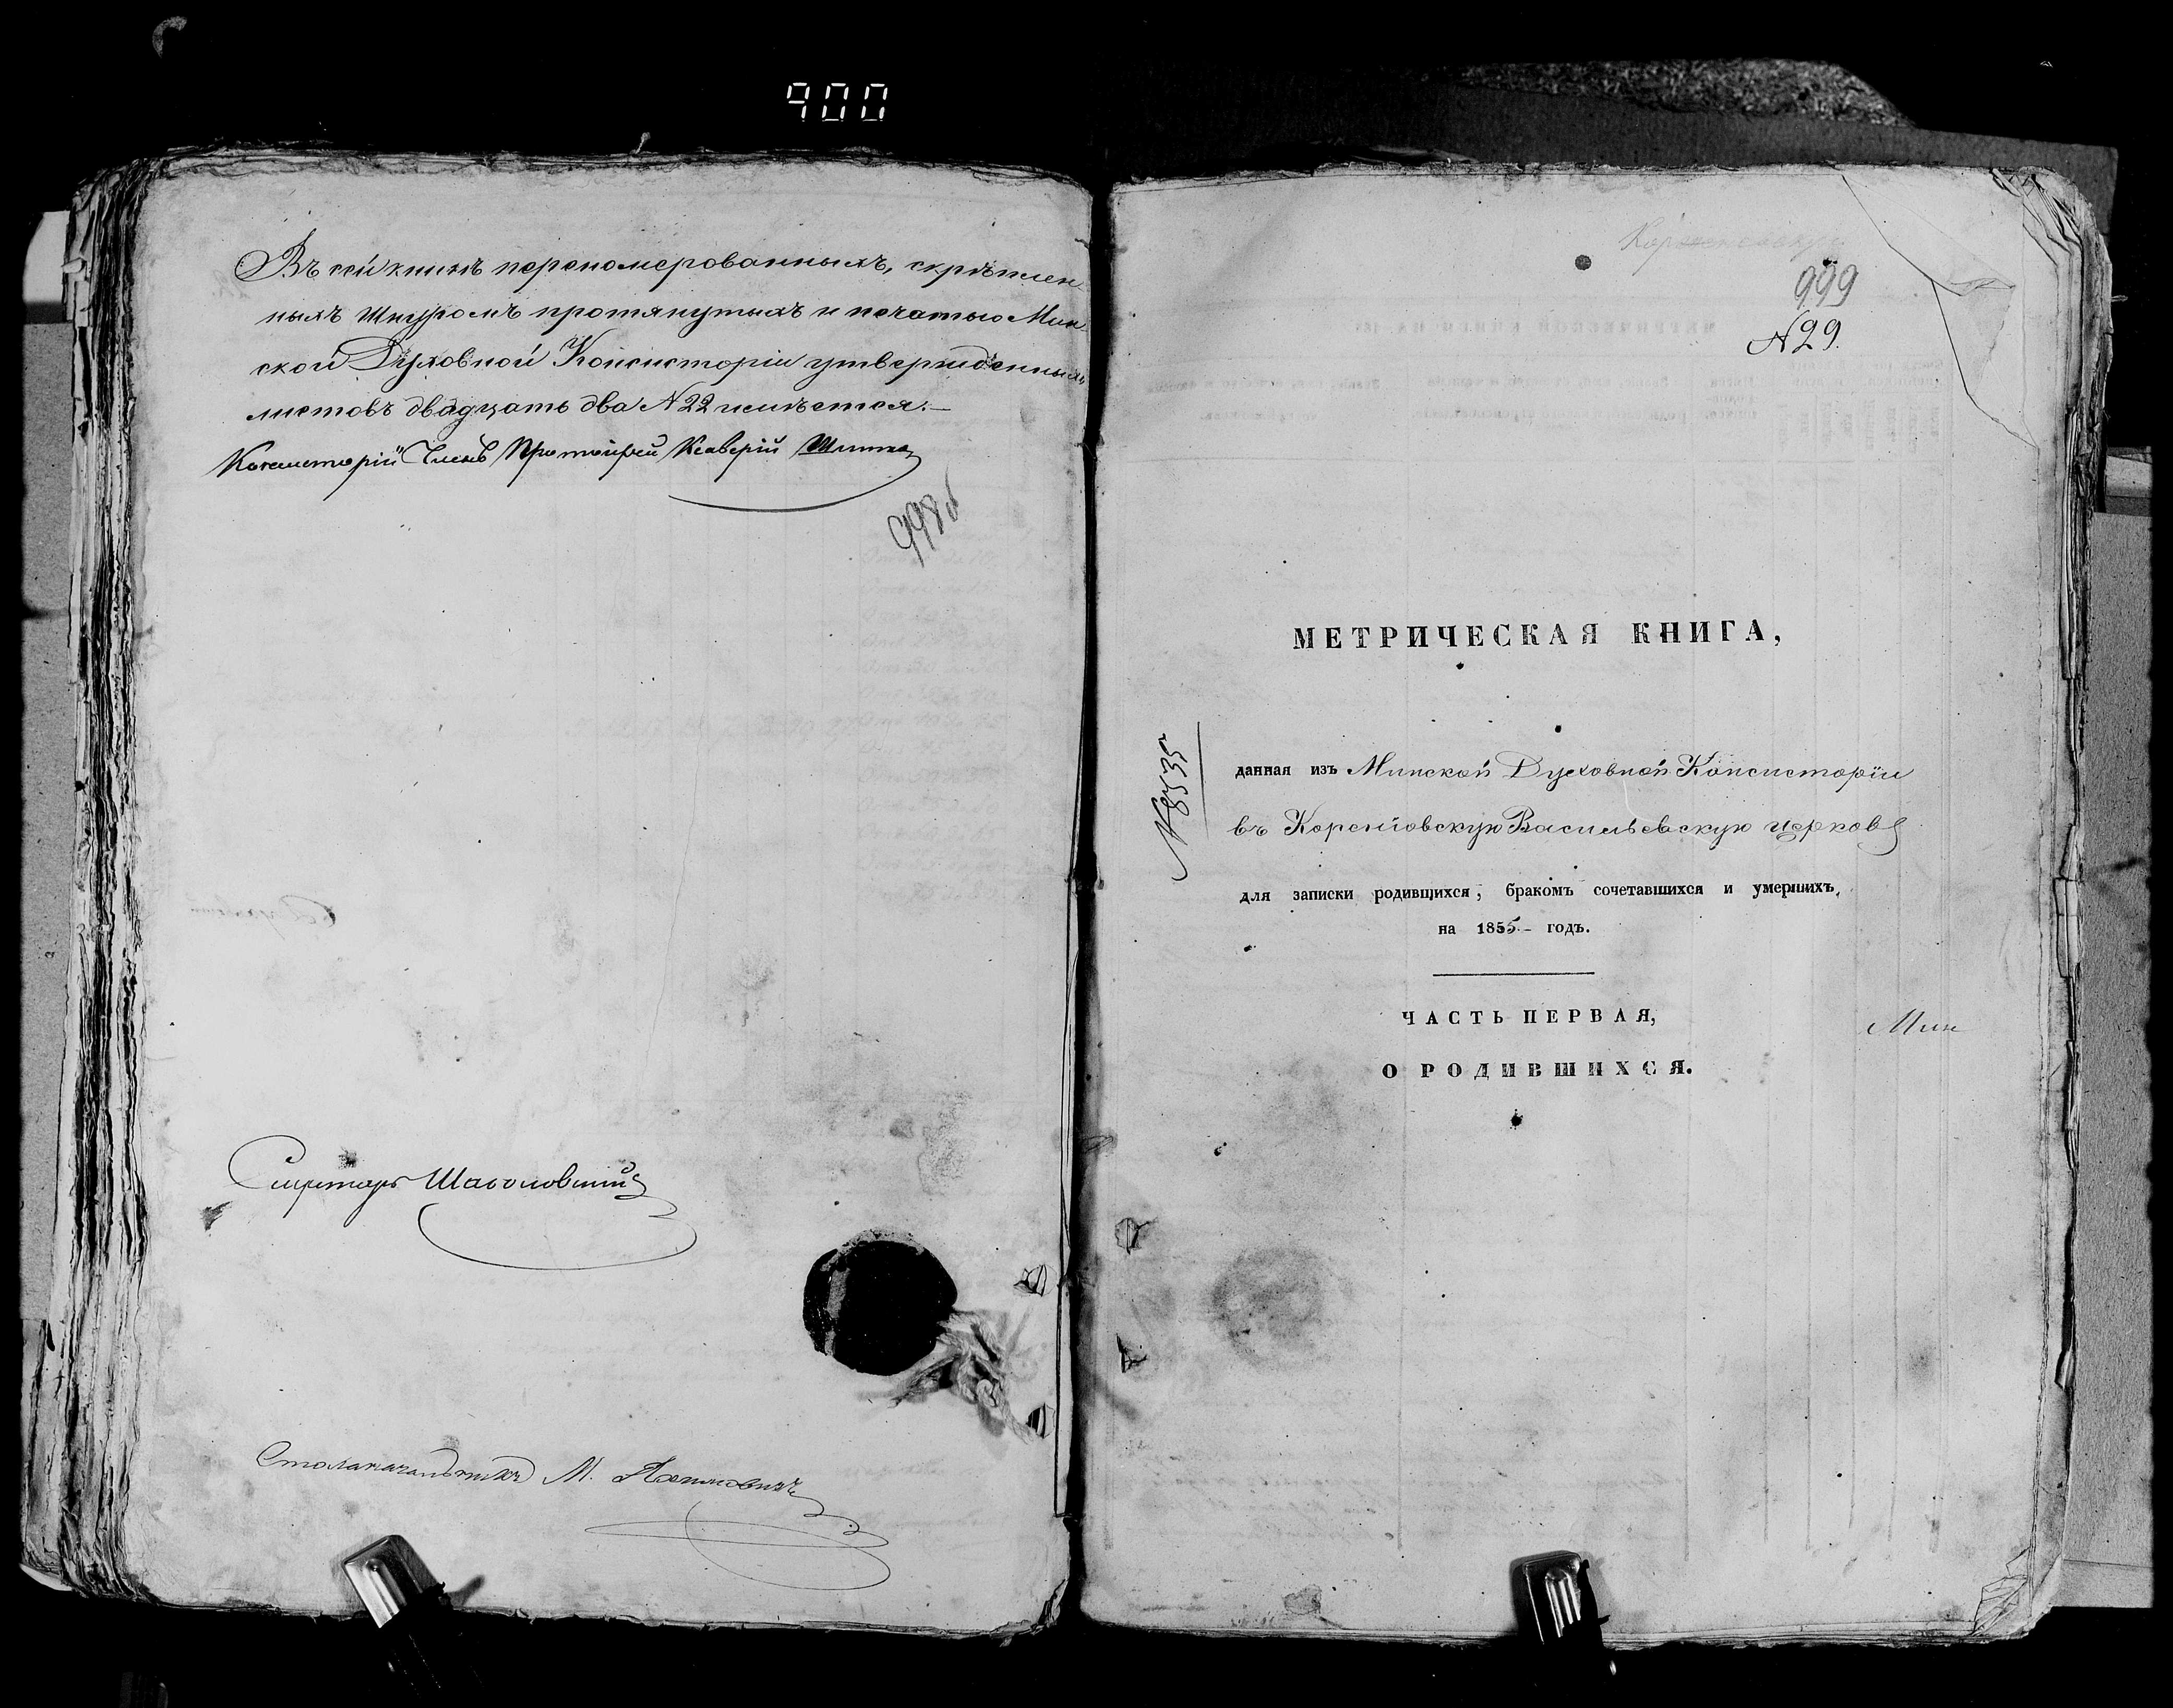 900
Въ сей книгѣ перепомерованныхъ, скрѣплен-
ныхъ шнуромъ протянутыхъ и печатью Мин-
ской Духовной Консисторіи утвержденныхъ
листовъ двадцать два № 22 имѣется.—
Консисторіи Членъ Протоіерей Ксаверій
998б
Секретарь
Столоначальникъ М.
999
№ 29.
МЕТРИЧЕСКАЯ КНИГА,
№ 8535
данная изъ Минской Духовной Консисторіи
въ Кореневскую Васильевскую церковь
для записки родившихся, бракомъ сочетавшихся и умершихъ,
на 1855- годъ.
ЧАСТЬ ПЕРВАЯ,
Мин
О РОДИВШИХСЯ.